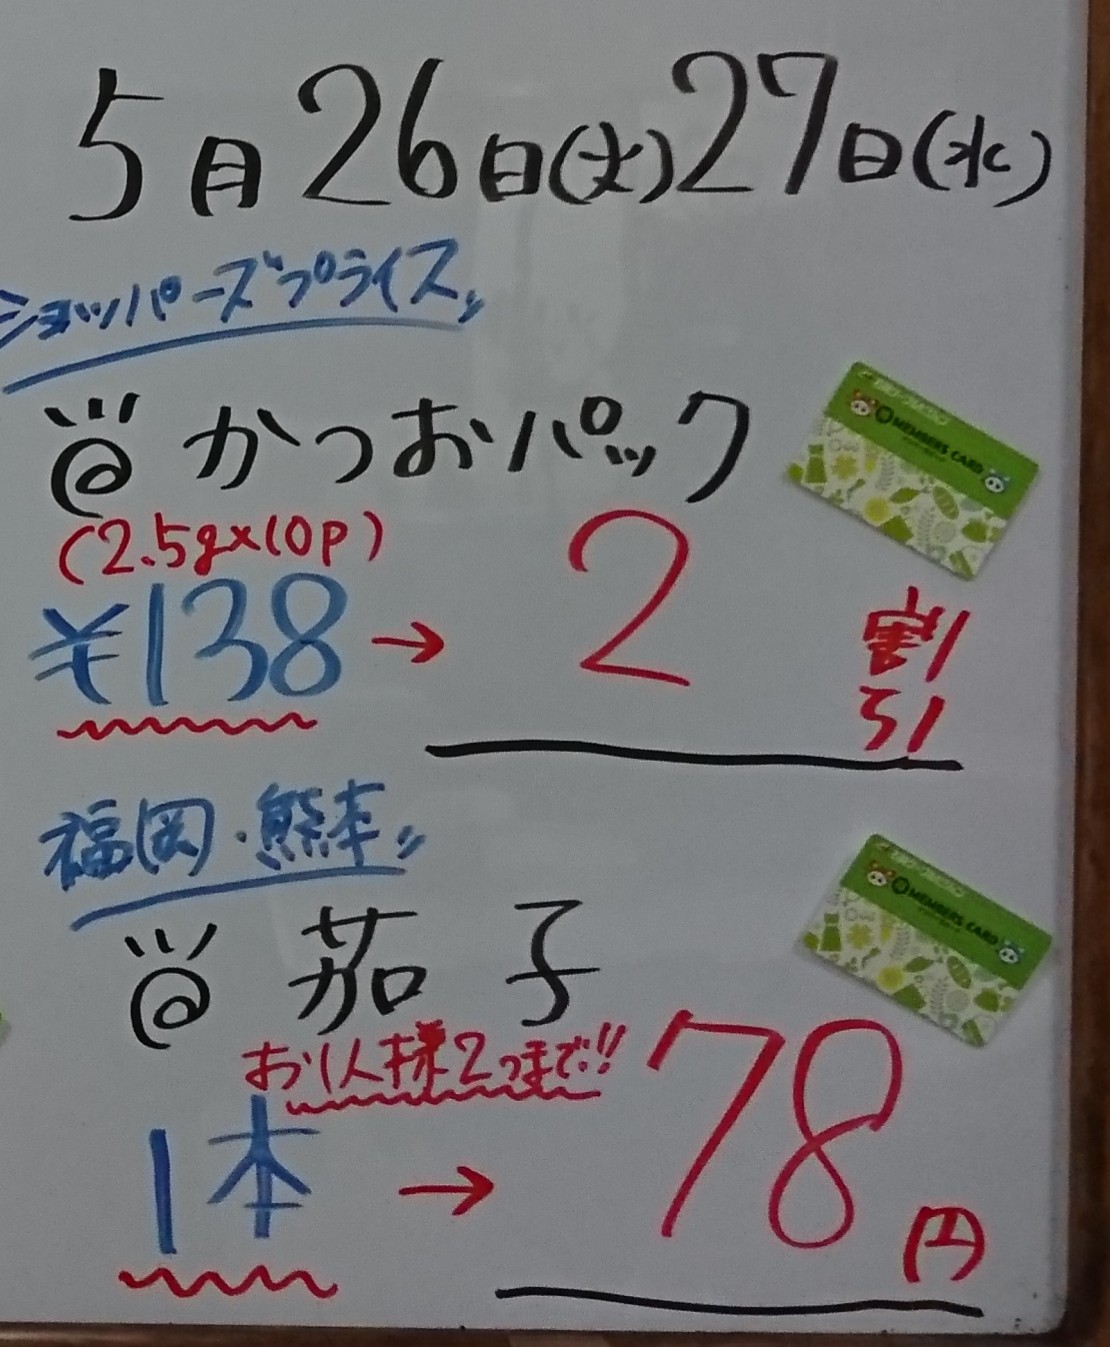 5月26日(火)27日(水)
ショッパーズプライス〃
@かつおパック
(2.5g×10p)
¥138→2割引
MEMBERS CARD
福岡・熊本〃
@茄子
お1人様2つまで!!
1本→78円
MEMBERS CARD